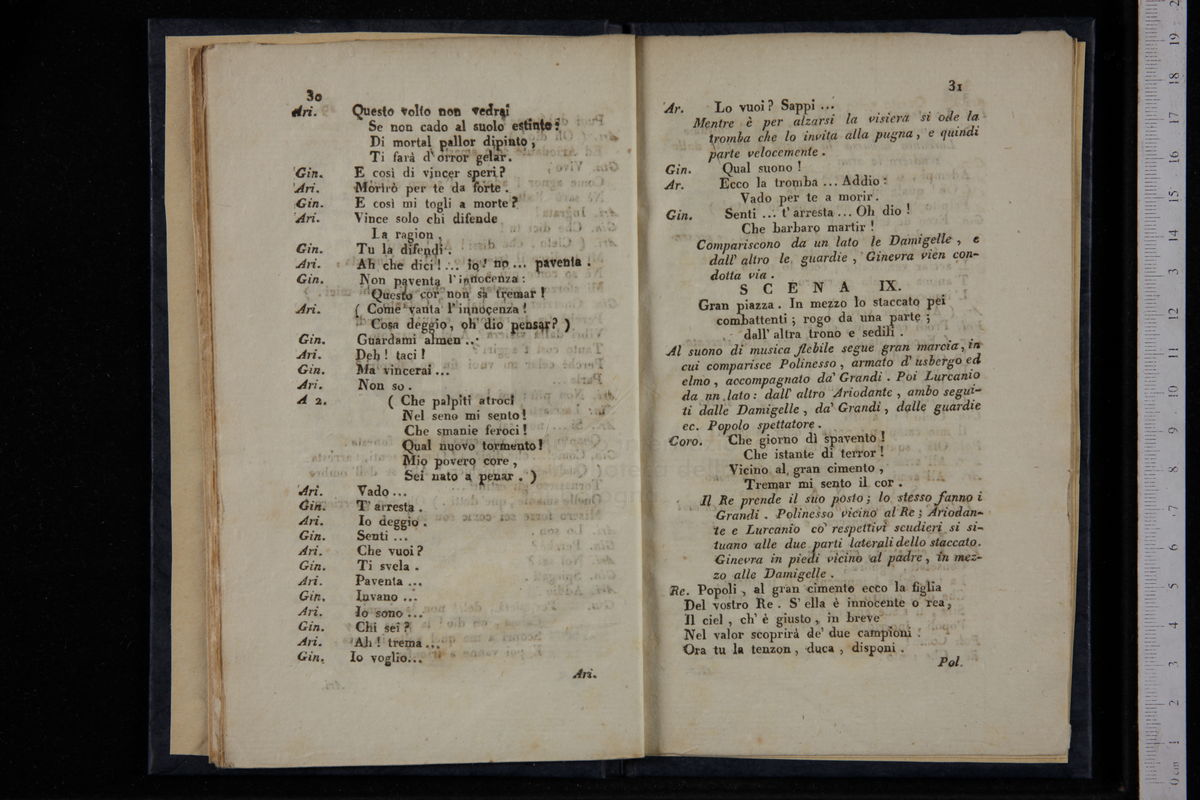 30
Ari. Questo volto non vedrai
Se non cado al suolo estinto:
Di mortal pallor dipinto,
Ti farà d'orror gelar.
Gin. E così di vincer speri?
Ari. Morirò per te da forte.
Gin. E così mi togli a morte?
Ari. Vince solo chi difende
La ragion,
Gin. Tu la difendi.
Ari. Ah che dici!... io! no... paventa.
Gin. Non paventa l'innocenza:
Questo cor non sa tremar!
Ari. (Come vanta l'innocenza!
Cosa deggio, oh dio pensar?)
Gin. Guardami almen...
Ari. Deh! taci!
Gin. Ma vincerai...
Ari. Non so.
A 2. (Che palpiti atroci
Nel seno mi sento!
Che smanie feroci!
Qual nuovo tormento!
Mio povero core,
Sei nato a penar.)
Ari. Vado...
Gin. T'arresta.
Ari. Io deggio.
Gin. Senti...
Ari. Che vuoi?
Gin. Ti svela.
Ari. Paventa...
Gin. Invano...
Ari. Io sono...
Gin. Chi sei?
Ari. Ah! trema...
Gin. Io voglio...
Ari.
31
Ar. Lo vuoi? Sappi...
Mentre è per alzarsi la visiera si ode la
tromba che lo invita alla pugna, e quindi
parte velocemente.
Gin. Qual suono!
Ar. Ecco la tromba... Addio:
Vado per te a morir.
Gin. Senti... t'arresta... Oh dio!
Che barbaro martir!
Compariscono da un lato le Damigelle, e
dall'altro le guardie, Ginevra vien con-
dotta via.
SCENA IX.
Gran piazza. In mezzo lo staccato pei
combattenti; rogo da una parte;
dall'altra trono e sedili.
Al suono di musica flebile segue gran marcia, in
cui comparisce Polinesso, armato d'usbergo ed
elmo, accompagnato da' Grandi. Poi Lurcanio
da nn lato: dall'altro Ariodante, ambo segui-
ti dalle Damigelle, da' Grandi, dalle guardie
ec. Popolo spettatore.
Coro. Che giorno di spavento!
Che istante di terror!
Vicino al gran cimento,
Tremar mi sento il cor.
Il Re prende il suo posto; lo stesso fanno i
Grandi. Polinesso vicino al Re; Ariodan-
te e Lurcanio co' respettivi scudieri si si-
tuano alle due parti laterali dello staccato.
Ginevra in piedi vicino al padre, in mez-
zo alle Damigelle.
Re. Popoli, al gran cimento ecco la figlia
Del vostro Re. S'ella è innocente o rea,
Il ciel, ch'è giusto, in breve
Nel valor scoprirà de' due campioni:
Ora tu la tenzon, duca, disponi.
Pol.